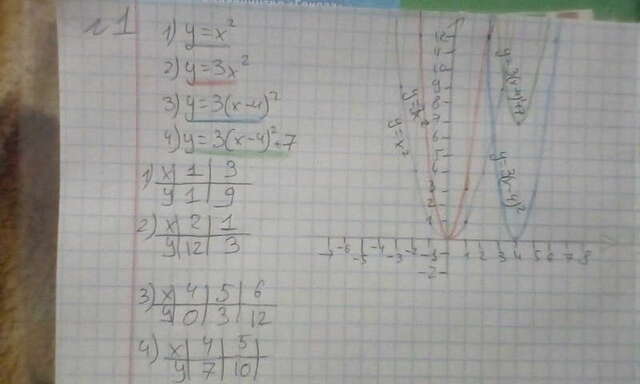 N1
1) y=x²
2) y=3x²
3) y=3(x-4)²
4) y=3(x-4)²+7
1) x 1 3
y 1 9
2) x 2 1
y 12 3
3) x 4 5 6
y 0 3 12
4) x 4 5
y 7 10
y=x²
y=3(x-4)²
12
10
9
8
7
6
5
4
3
2
1
-6 -5 -4 -3 -2
1 2 3 4 5 6 7 8
-2